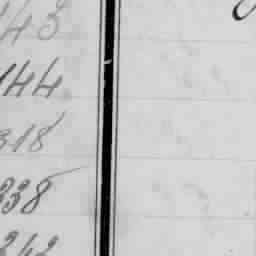 143
144
318
338
342